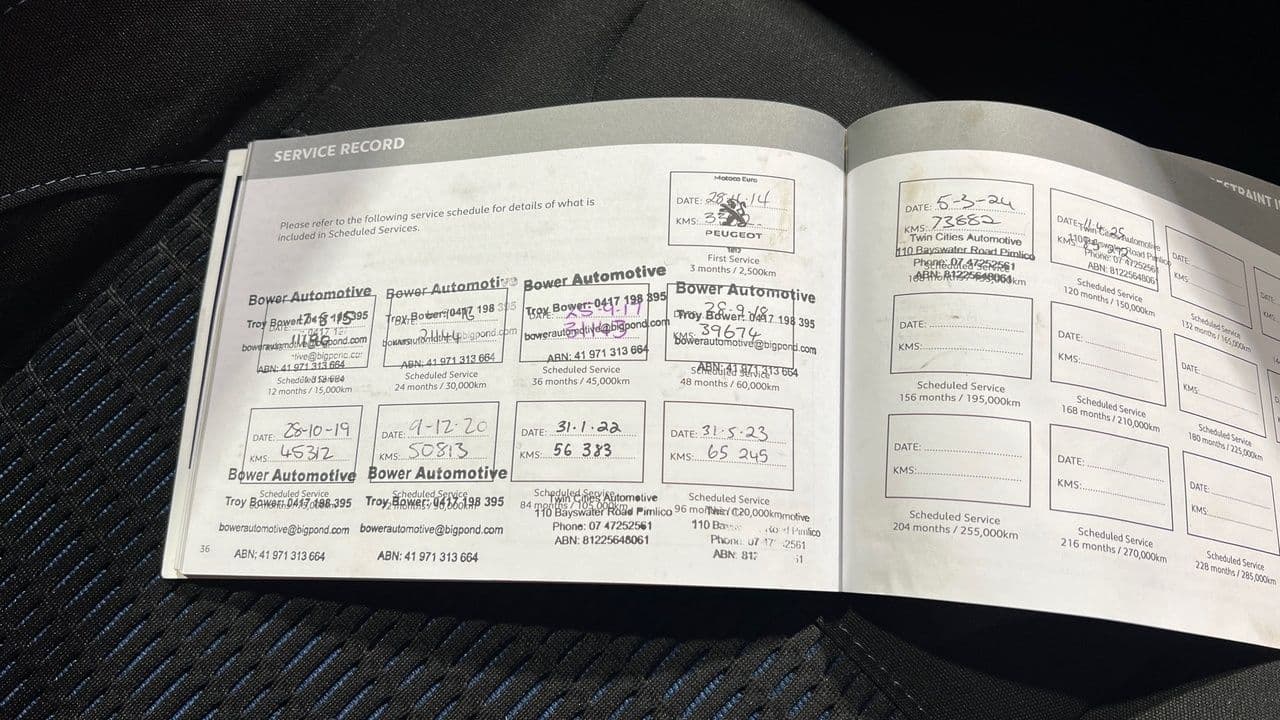 SERVICE RECORD
Please refer to the following service schedule for details of what is
included in Scheduled Services.
Motoco Euro
DATE: 28
14
KMS:
PEUGEOT
First Service
3 months / 2,500km
Bower Automotive
Troy Bower: 0417 198 395
bowerautomotive@bigpond.com
ABN: 41 971 313 664
12 months / 15,000km
Bower Automotive
Troy Bower: 0417 198 395
@bigpond.com
ABN: 41 971 313 664
Scheduled Service
24 months / 30,000km
Bower Automotive
Troy Bower: 0417 198 395
25-9-17
bowerautomotive@bigpond.com
ABN: 41 971 313 664
Scheduled Service
36 months / 45,000km
Bower Automotive
Troy Bower: 0417 198 395
KMS: 39674
bowerautomotive@bigpond.com
ABN: 41 971 313 664
48 months / 60,000km
DATE: 28-10-19
KMS: 45312
Bower Automotive
Scheduled Service
Troy Bower: 0417 198 395
bowerautomotive@bigpond.com
ABN: 41 971 313 664
DATE: 9-12-20
KMS: 50813
Bower Automotive
Scheduled Service
Troy Bower: 0417 198 395
bowerautomotive@bigpond.com
ABN: 41 971 313 664
DATE: 31·1·22
KMS: 56 383
Scheduled Service
Twin Cities Automotive
84 months / 105,000km
110 Bayswater Road Pimlico
Phone: 07 47252561
ABN: 81225648061
DATE: 31.5.23
KMS: 65 245
Scheduled Service
96 months / 120,000km
110 Road Pimlico
Phone: 07 47 2561
ABN: 81
36
RESTRAINT
DATE: 5-3-24
KMS: 73682
Twin Cities Automotive
110 Bayswater Road Pimlico
Phone: 07 47252561
Scheduled Service
ABN: 81225648061
DATE:
Twin Cities Automotive
KMS:
Bayswater Road Pimlico
Phone: 07 4725256
ABN: 812256480
Scheduled Service
120 months / 150,000km
DATE:
KMS:
Scheduled Service
132 months / 165,000km
DATE:
KMS:
Scheduled Service
156 months / 195,000km
DATE:
KMS:
Scheduled Service
168 months / 210,000km
DATE:
KMS:
Scheduled Service
180 months / 225,000km
DATE:
KMS:
Scheduled Service
204 months / 255,000km
DATE:
KMS:
Scheduled Service
216 months / 270,000km
DATE:
KMS:
Scheduled Service
228 months / 285,000km